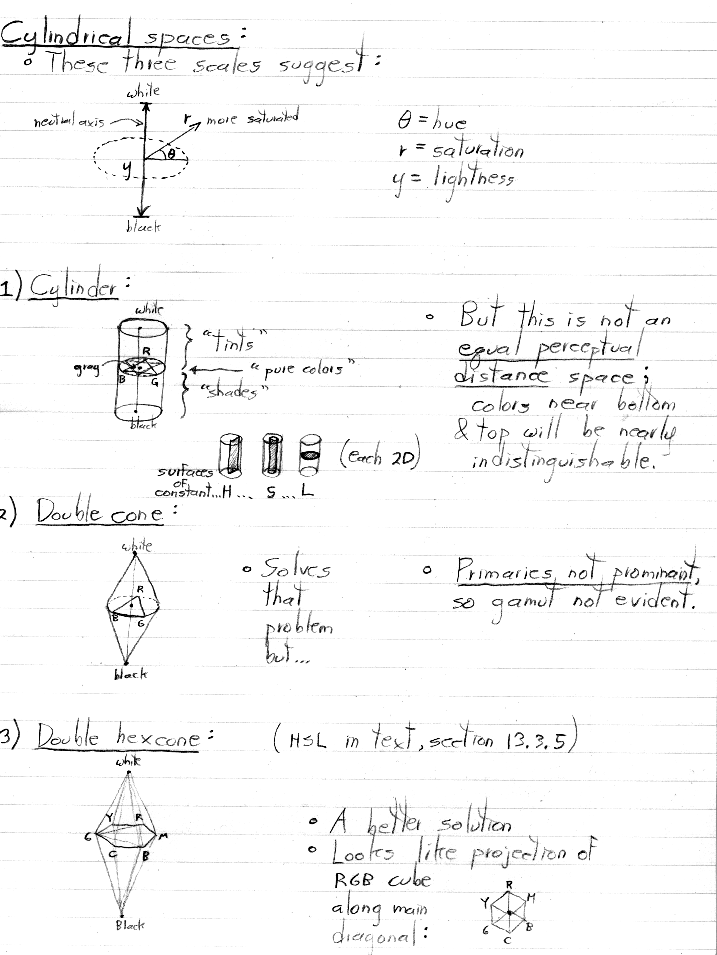 Cylindrical spaces:
° These three scales suggest:
white
neutral axis
r more saturated
θ
y
black
θ = hue
r = saturation
y = lightness
1) Cylinder:
white
R
gray
B
G
black
"tints"
"pure colors"
"shades"
° But this is not an
equal perceptual
distance space;
colors near bottom
& top will be nearly
indistinguishable.
surfaces
of
constant...H ... S ... L
(each 2D)
2) Double cone:
white
R
B
G
black
° Solves
that
problem
but...
° Primaries not prominant,
so gamut not evident.
3) Double hexcone: (HSL in text, section 13.3.5)
white
Y R
G M
C B
Black
° A better solution
° Looks like projection of
RGB cube
along main
diagonal:
R
Y M
G B
C